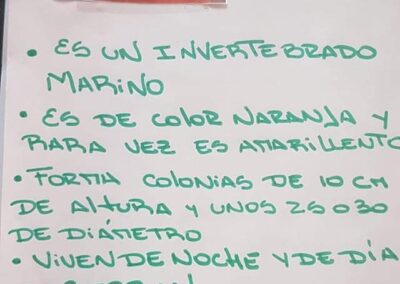 • ES UN INVERTEBRADO
MARINO
• ES DE COLOR NARANJA Y
RARA VEZ ES AMARILLENTO
• FORMA COLONIAS DE 10 CM
DE ALTURA Y UNOS 25 O 30
DE DIÁMETRO
• VIVEN DE NOCHE Y DE DÍA